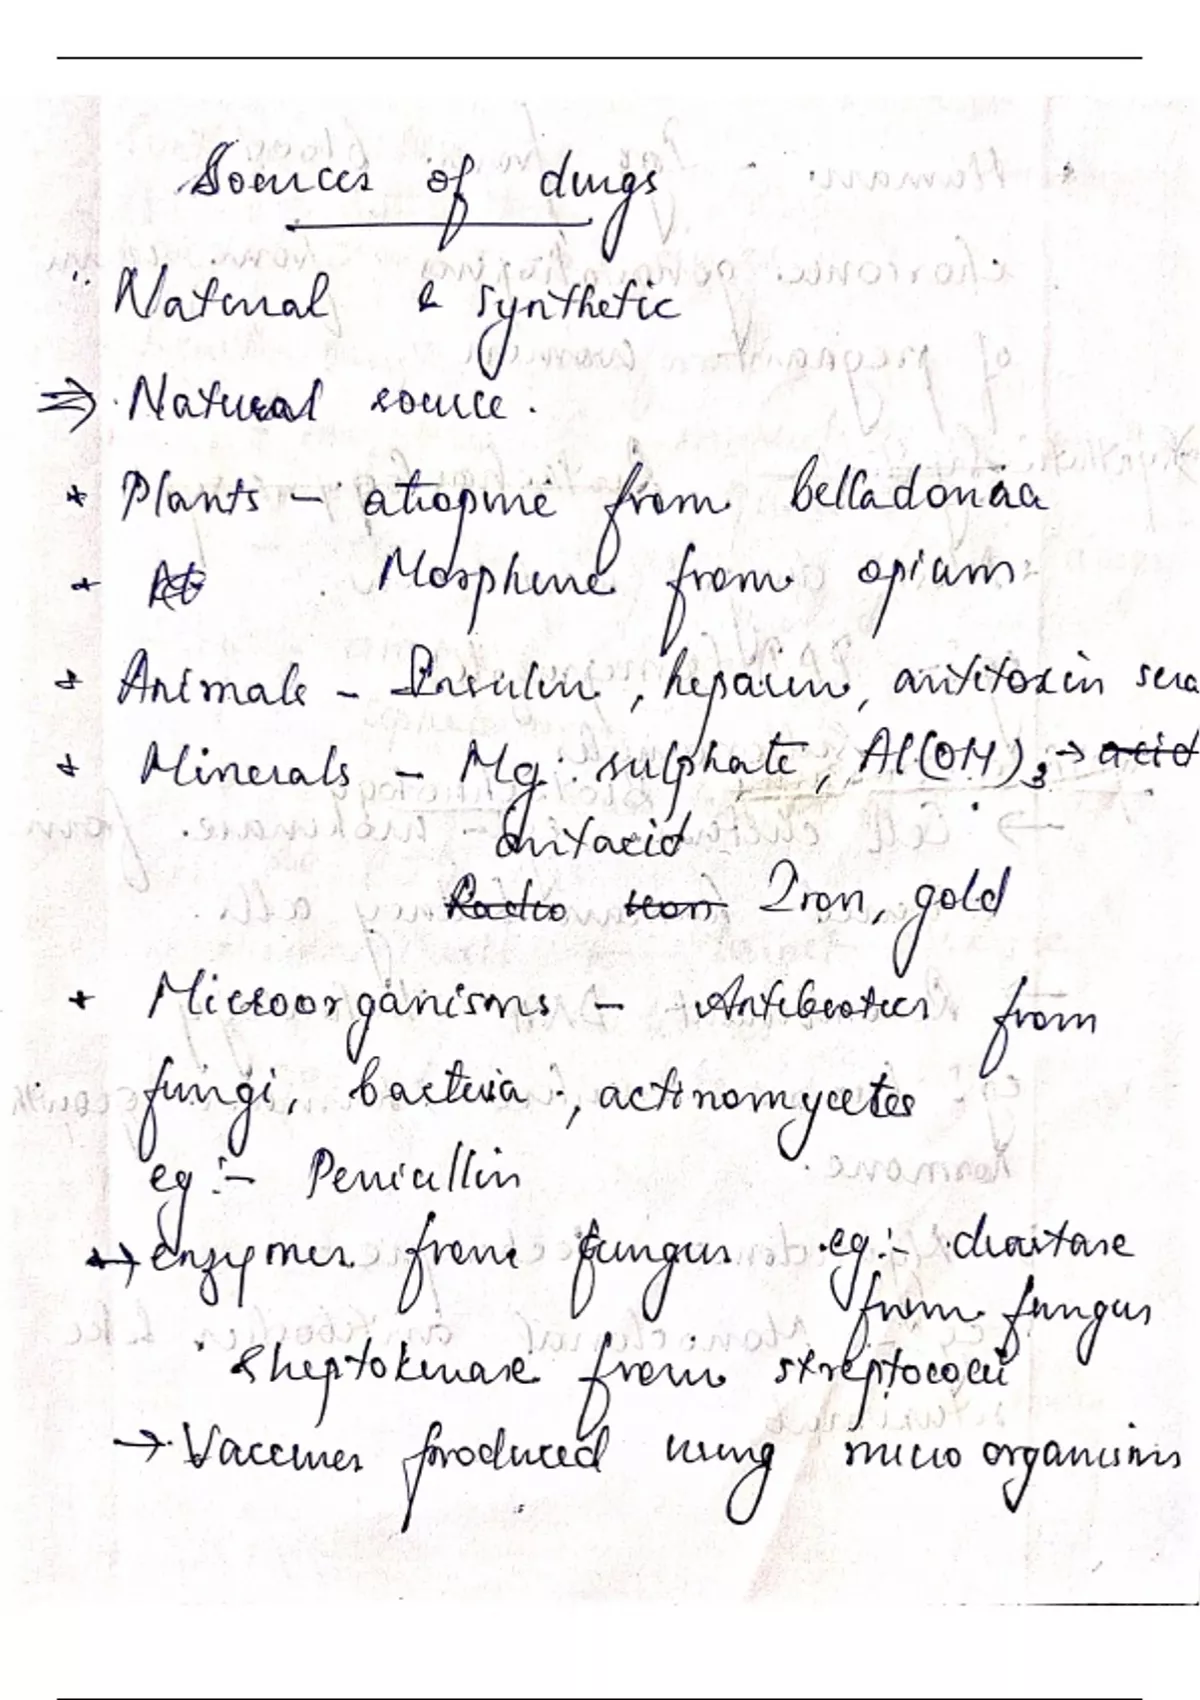 Sources of drugs
Natural & synthetic
⇒ Natural source.
* Plants - atropine from belladonaa
* Morphine from opium
* Animals - Insulin, heparin, antitoxin sera
* Minerals - Mg. sulphate, Al(OH)3 → acid
antacid
Radio Iron, gold
* Microorganisms - Antibiotics from
fungi, bacteria, actinomycetes
eg:- Penicillin
→ enzymes from fungus eg:- diastase
from fungus
streptokinase from streptococci
→ Vaccines produced using micro organisms